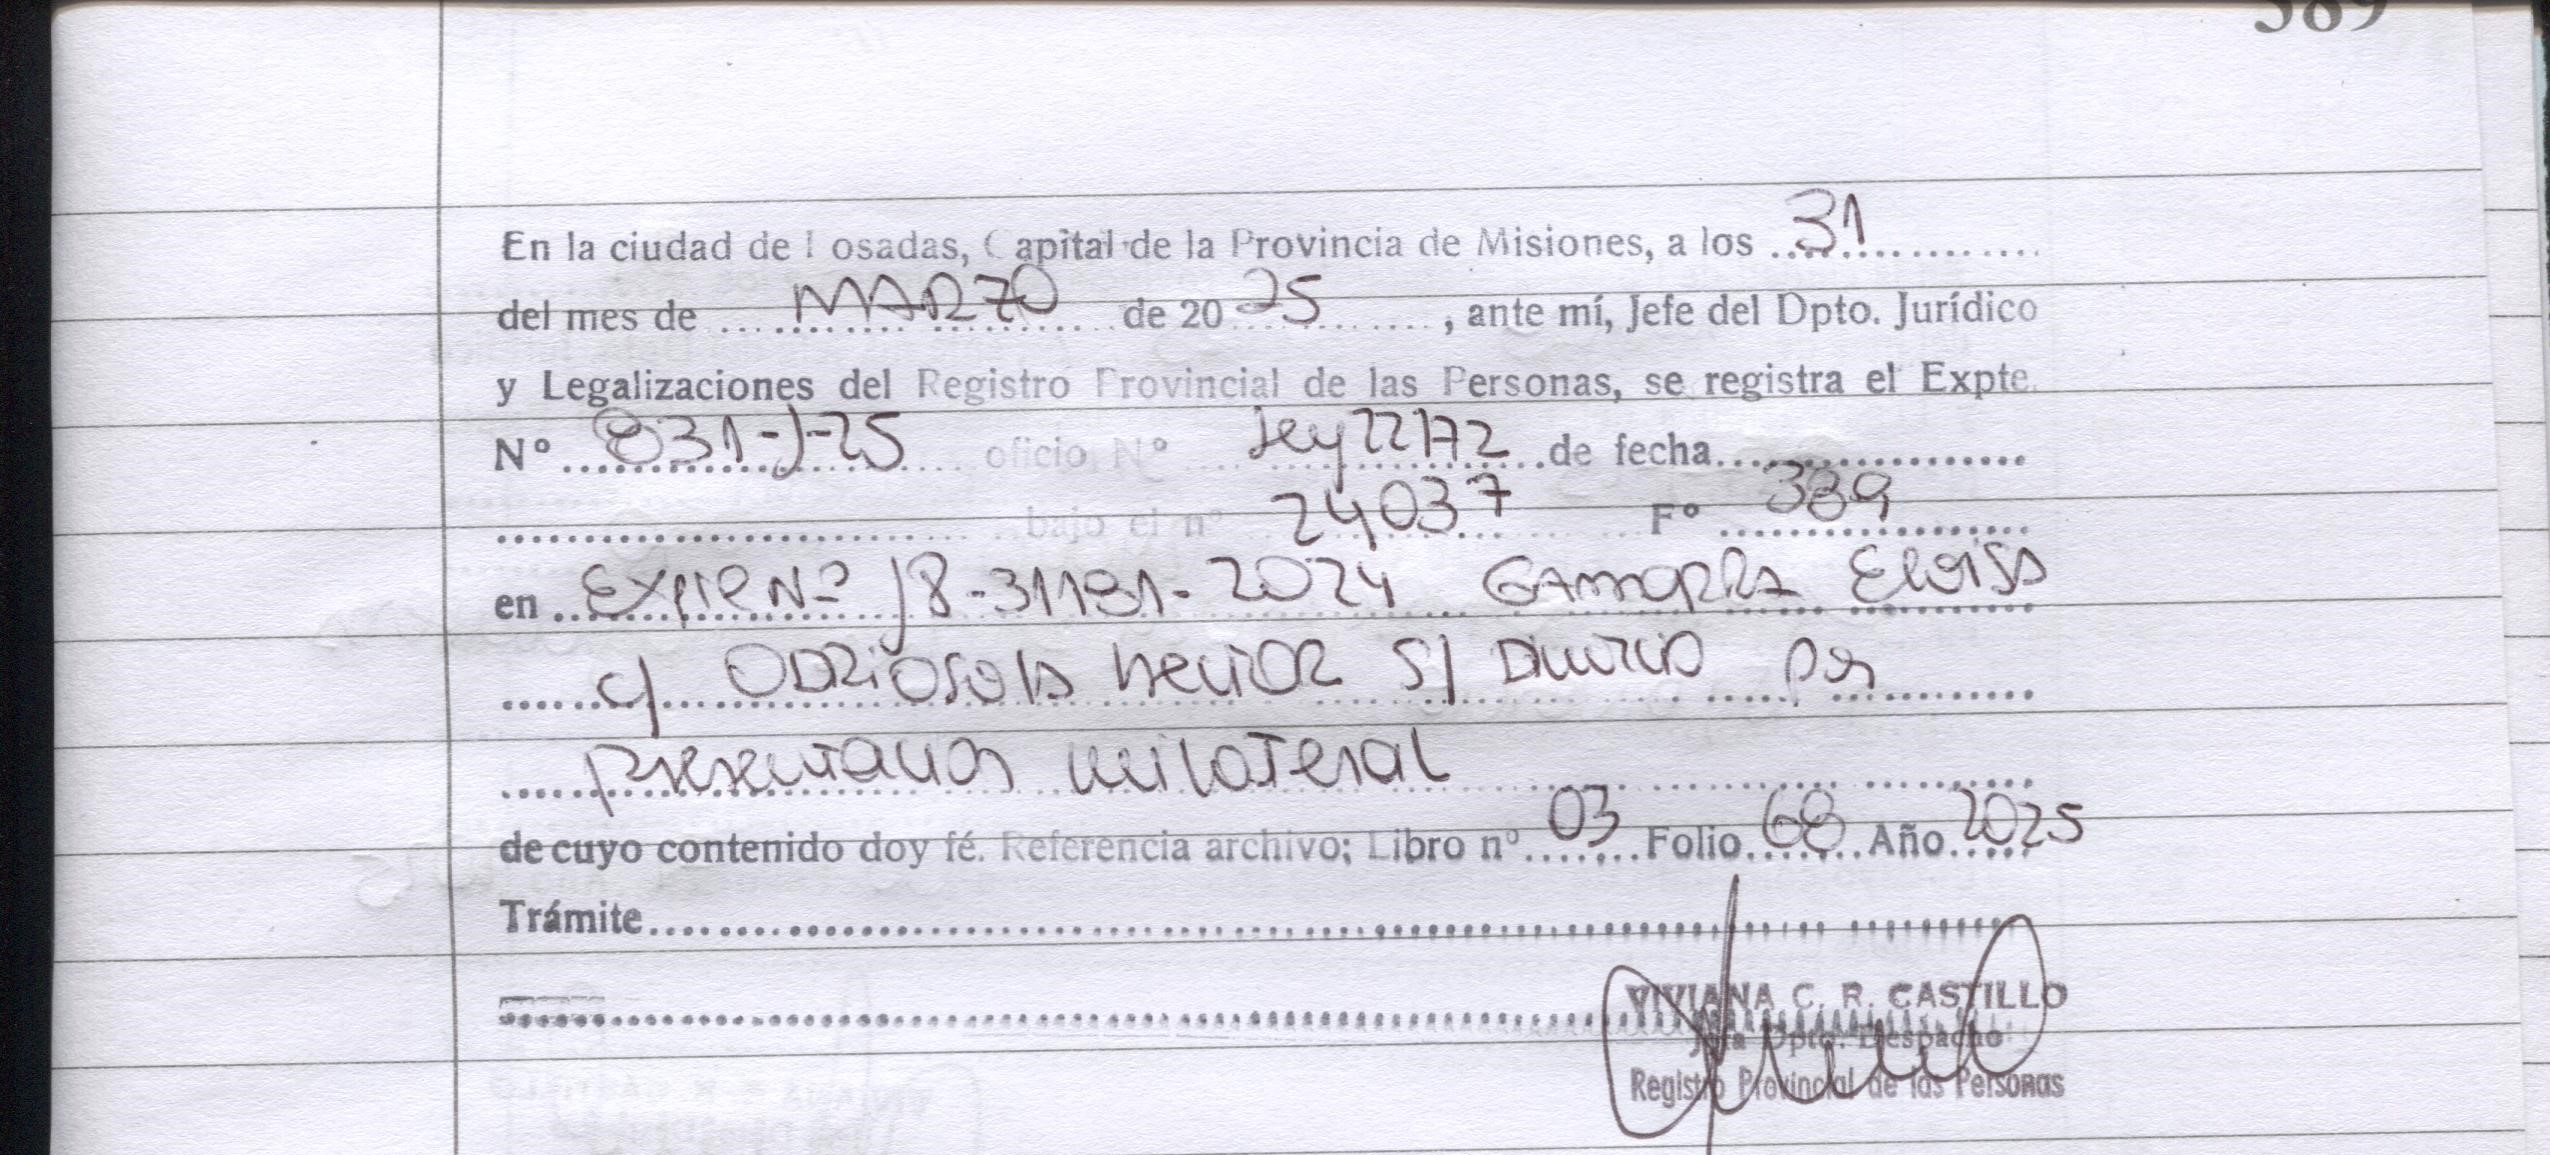 389
En la ciudad de Posadas, Capital de la Provincia de Misiones, a los 31
del mes de MARZO de 20 25, ante mí, Jefe del Dpto. Jurídico
y Legalizaciones del Registro Provincial de las Personas, se registra el Expte.
Nº 831-J-25 oficio Nº Ley 22172 de fecha
bajo el nº 24037 Fº 389
en EXPTE Nº 18-31191-2024 GAMARRA Eloisa
c/ ODRIOSOLA HECTOR S/ Divorcio por
presentacion unilateral
de cuyo contenido doy fé. Referencia archivo; Libro nº 03 Folio 68 Año 2025
Trámite
VIVIANA C. R. CASTILLO
Jefa Dpto. Despacho
Registro Provincial de las Personas